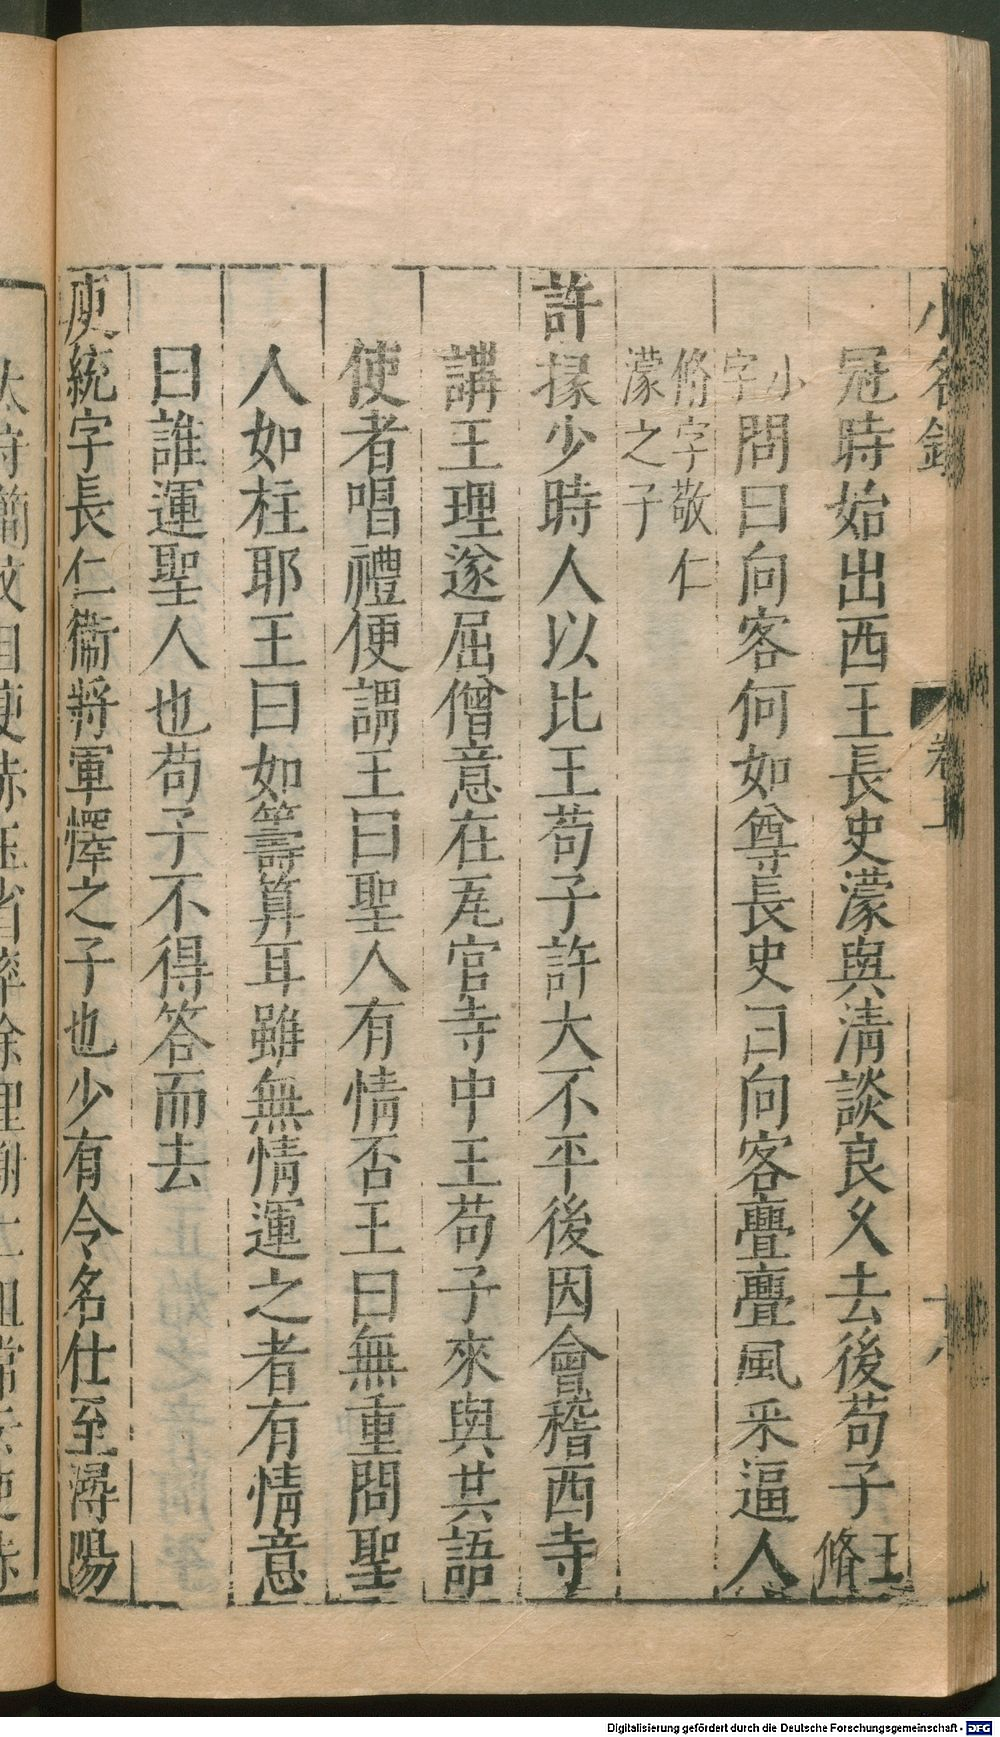 小名錄 卷上 十八
冠時始出西王長史濛與清談良久去後苟子王脩
小字問曰向客何如尊長史曰向客亹亹風采逼人
脩字敬仁濛之子
許掾少時人以比王苟子許大不平後因會稽西寺
講王理遂屈僧意在瓦官寺中王苟子來與其語
使者唱禮便謂王曰聖人有情否王曰無重問聖
人如柱耶王曰如籌算耳雖無情運之者有情意
曰誰運聖人也苟子不得答而去
庾統字長仁衞將軍懌之子也少有令名仕至潯陽
Digitalisierung gefördert durch die Deutsche Forschungsgemeinschaft - DFG